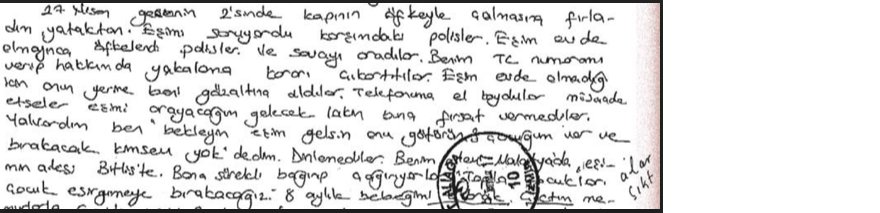 27 Nisan gecenin 2'sinde kapının öfkeyle çalmasına fırla-
dım yataktan. Eşimi soruyordu karşımdaki polisler. Eşim evde
olmayınca öfkelendi polisler. Ve savcıyı aradılar. Benim TC numaramı
verip hakkımda yakalama kararı çıkarttılar. Eşim evde olmadığı
için onun yerine beni gözaltına aldılar. Telefonuma el koydular müsaade
etseler eşimi arayacağım gelecek lakin buna fırsat vermediler.
Yalvardım ben "bekleyin eşim gelsin onu götürün 3 çocuğum var ve
bırakacak kimsem yok" dedim. Dinlemediler. Benim Malatya'da, eşi-
min ailesi Bitlis'te. Bana sürekli bağırıp çağırıyorlar
çocuk esirgemeye bırakacağız." 8 aylık bebeğimi me-